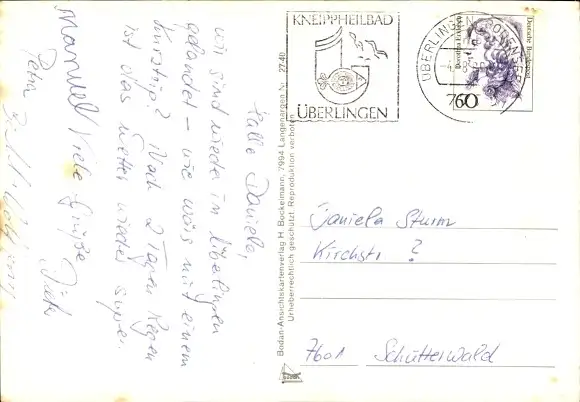 Hallo Daniela,
wir sind wieder in Überlingen
gelandet - wie wär's mit einem
Kurztrip? Nach 2 Tagen Regen
ist das Wetter wieder super.
Viele Grüße
Manuel
Petra
Bodan-Ansichtskartenverlag H. Bockelmann, 7994 Langenargen Nr. 27/40
Urheberrechtlich geschützt. Reproduktion verboten
KNEIPPHEILBAD
ÜBERLINGEN
ÜBERLINGEN, BODENSEE
Deutsche Bundespost
60
Daniela Sturm
Kirchstr ?
7601 Schutterwald